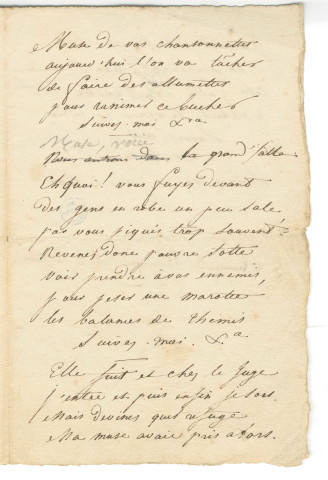 Muse de vos chansonnettes
aujourd'hui l'on va tâcher
de faire des allumettes
pour ranimer ce bucher
Suivez-moi &ra
Muse, voici
Nous entrons dans la grand'salle
Eh quoi! vous fuyez devant
Des gens en robe un peu sale,
par vous piqués trop souvent?
Revenez donc pauvre sotte
voir prendre à vos ennemis,
pour peser une marotte
les balances de Themis
Suivez-moi. &a
Elle fuit et chez le Juge
j'entre et puis enfin je sors
Mais devinez quel refuge
Ma muse avait pris alors.